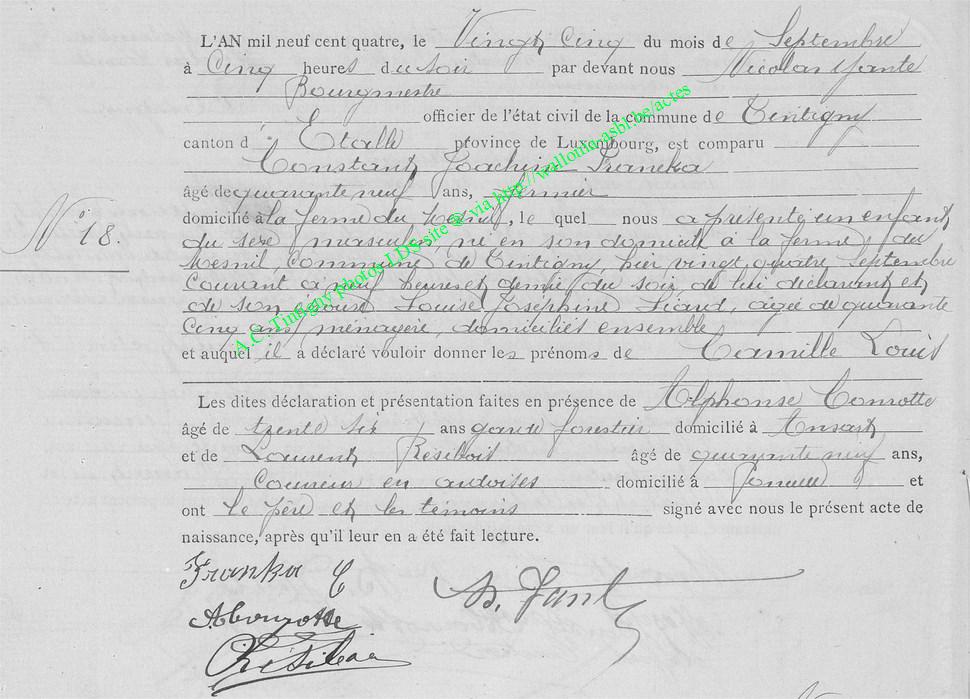 L'AN mil neuf cent quatre, le Vingt Cinq du mois de Septembre
à Cinq heures du soir par devant nous Nicolas
Bourgmestre
officier de l'état civil de la commune de Tintigny
canton d' Etalle province de Luxembourg, est comparu
Constant Joachim Francka
âgé de quarante neuf ans, fermier
domicilié à la ferme du Mesnil, le quel nous a présenté un enfant
du sexe masculin, né en son domicile à la ferme du
Mesnil, commune de Tintigny, hier vingt quatre Septembre
Courant à neuf heures et demie du soir, de lui déclarant et
de son épouse Louise Joséphine agée de quarante
Cinq ans, ménagère, domiciliés ensemble
et auquel il a déclaré vouloir donner les prénoms de Camille Louis
Les dites déclaration et présentation faites en présence de Alphonse Conrotte
âgé de trente six ans garde forestier domicilié à Ansart
et de Laurent Résibois âgé de quarante neuf ans,
Couvreur en ardoises domicilié à et
ont le père et les témoins signé avec nous le présent acte de
naissance, après qu'il leur en a été fait lecture.
N° 18.
Franka C
AConrotte
A.C. Tintigny photos LDS-site @ via http://wallonia.asbl.be/actes